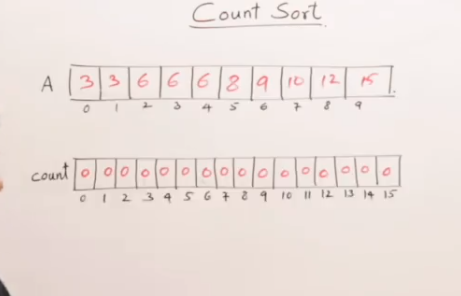 Count Sort
A 3 3 6 6 6 8 9 10 12 15
0 1 2 3 4 5 6 7 8 9
count 0 0 0 0 0 0 0 0 0 0 0 0 0 0 0 0
0 1 2 3 4 5 6 7 8 9 10 11 12 13 14 15